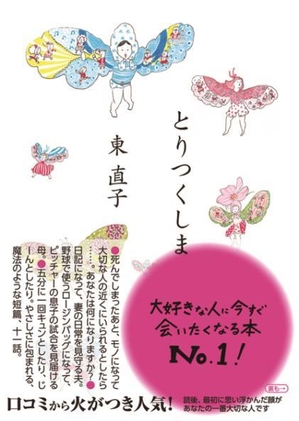 とりつくしま
東 直子
●死んでしまったあと、モノになって
大切な人の近くにいられるとしたら
……。あなたは何になりますか？●
日記になって、妻の日常を見守る夫。
野球で使うロージンバッグになって、
ピッチャーの息子の試合を見届ける
母。●五分に一回キュンとしたり、じ
ーんとしたり。やさしさに包まれる、
魔法のような短篇、十一話。
大好きな人に今すぐ
会いたくなる本
No.1!
口コミから火がつき人気!
裏も→
読後、最初に思い浮かんだ顔が
あなたの一番大切な人です